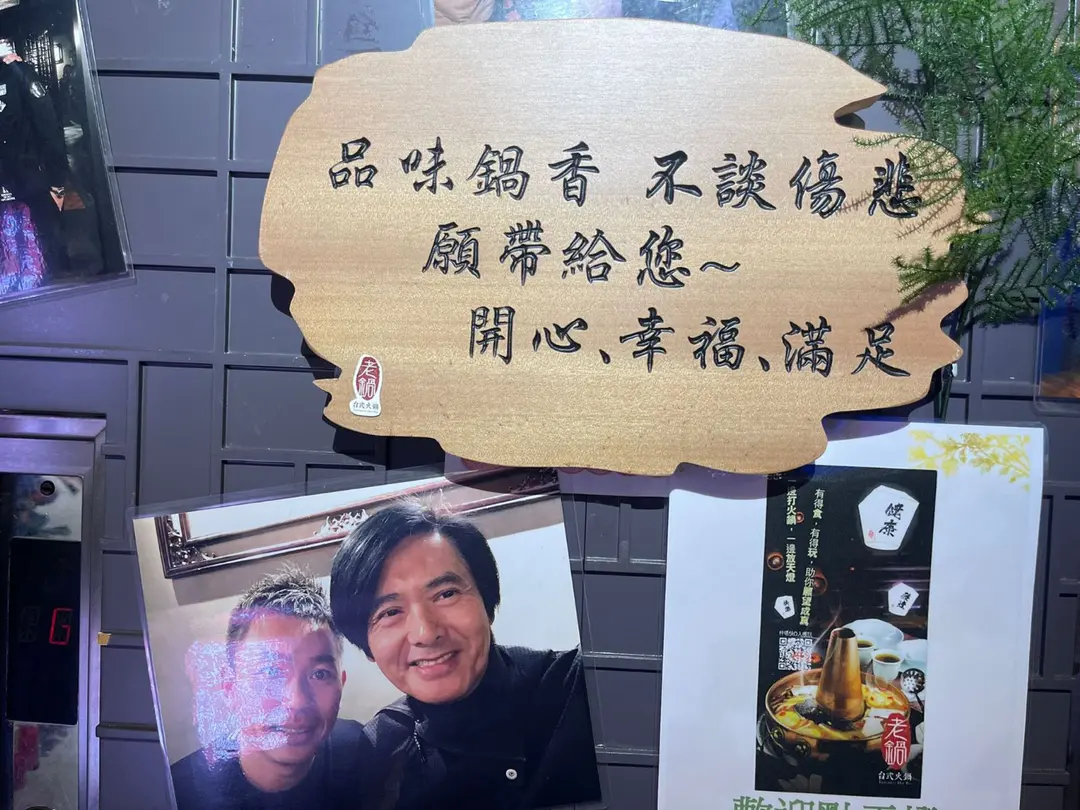 品味鍋香 不談傷悲
願帶給您~
開心、幸福、滿足
老鍋
台式火鍋
G
有得食，有得玩，助你願望成真
一邊打火鍋，一邊放天燈
健康
老鍋
台式火鍋